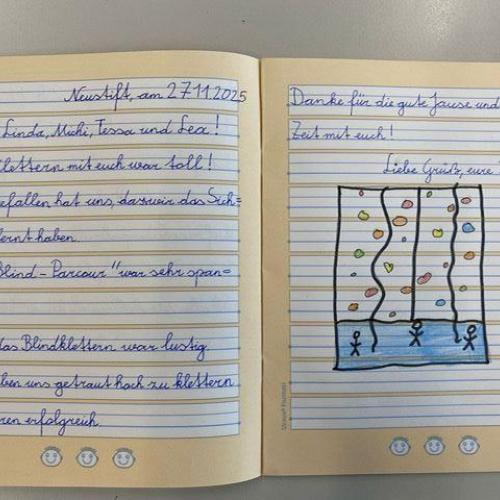 Neustift, am 27.11.2025
Linda, Michi, Tessa und Lea!
klettern mit euch war toll!
efallen hat uns, dass wir das Sich=
lernt haben.
Blind - Parcour" war sehr span=
das Blindklettern war lustig
ben uns getraut hoch zu klettern
ren erfolgreich.
Danke für die gute Jause und
Zeit mit euch!
Liebe Grüße, eure